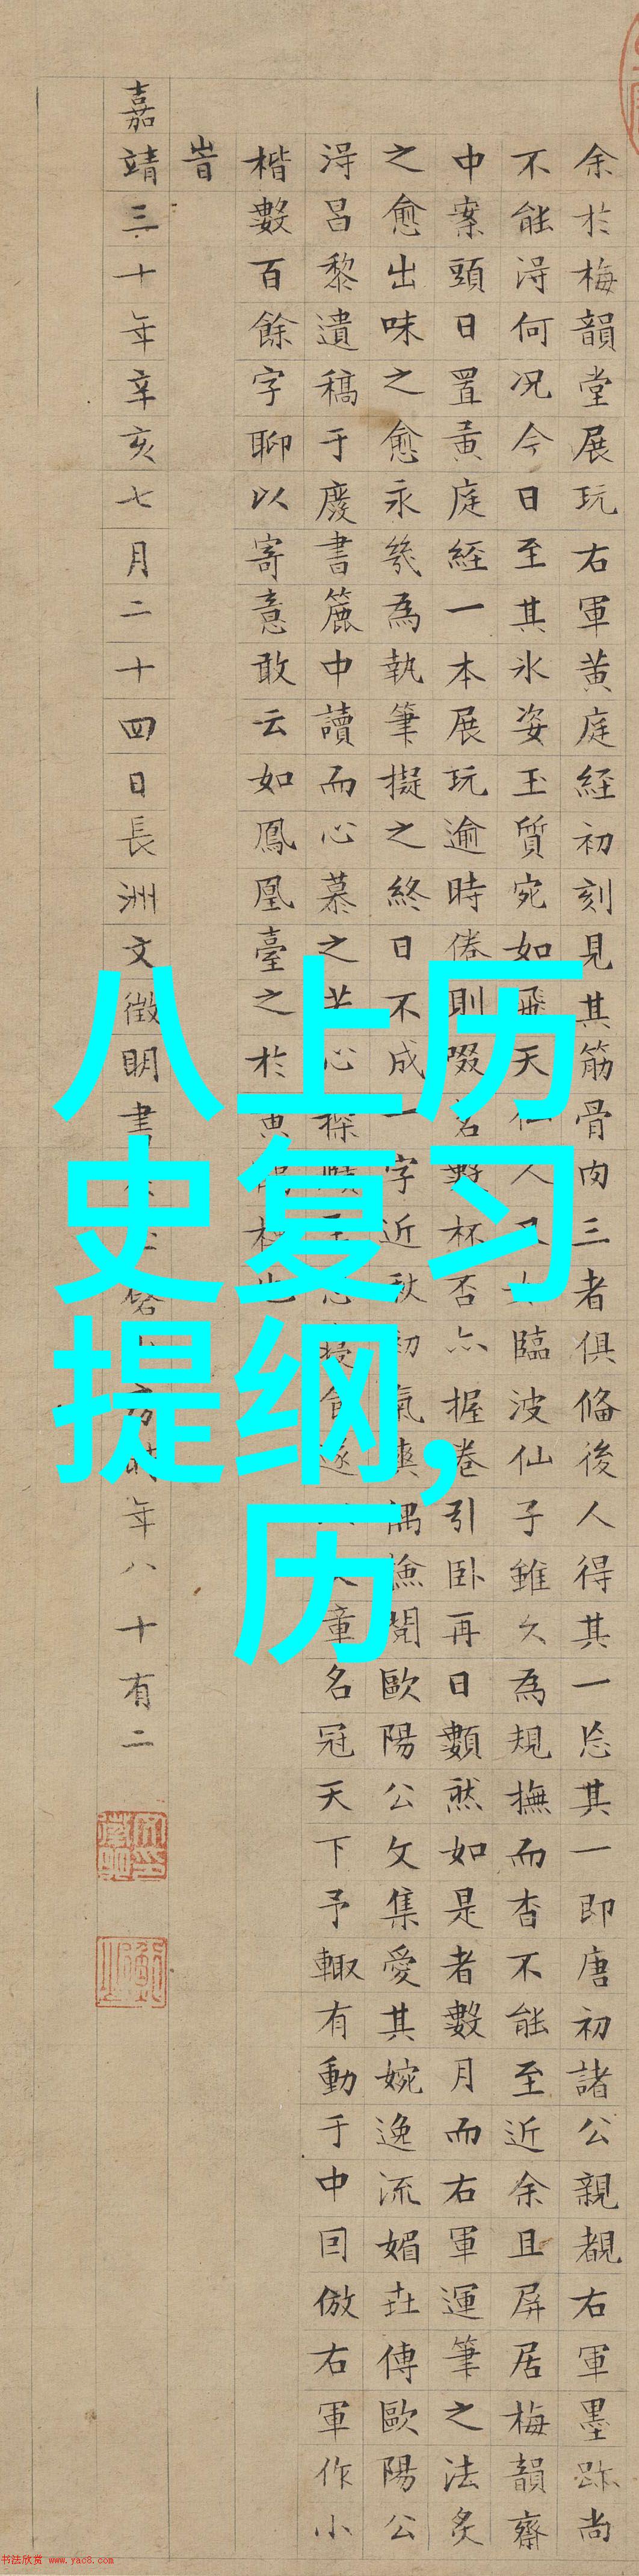 余於梅韻堂展玩右軍黄庭經初刻見其筋骨肉三者俱俻後人得其一忘其一即唐初諸公親覩右軍墨跡尚
不能淂何况今日至其氷姿玉質宛如飛天仙人又如臨波仙子雖久為規撫而杳不能至近余且屏居梅韻齋
中案頭日置黄庭經一本展玩逾時倦則啜茗數杯否亦握卷引卧再日數然如是者數月而右軍運筆之法炙
之愈出味之愈永幾為執筆擬之終日不成一字近秋初氣爽偶撿閲歐陽公文集愛其婉逸流媚茲傳歐陽公
淂昌黎遺稿于廢書簏中讀而心慕之苦心探賾至忘寝食遂以文章名冠天下予輙有動于中因倣右軍作小
楷數百餘字聊以寄意敢云如鳳凰臺之於黄鶴樓也
旹
嘉靖三十年辛亥七月二十四日長洲文徵明書
方時年八十有二
八上历
史复习
提纲,
历
书法欣赏 www.yac8.com